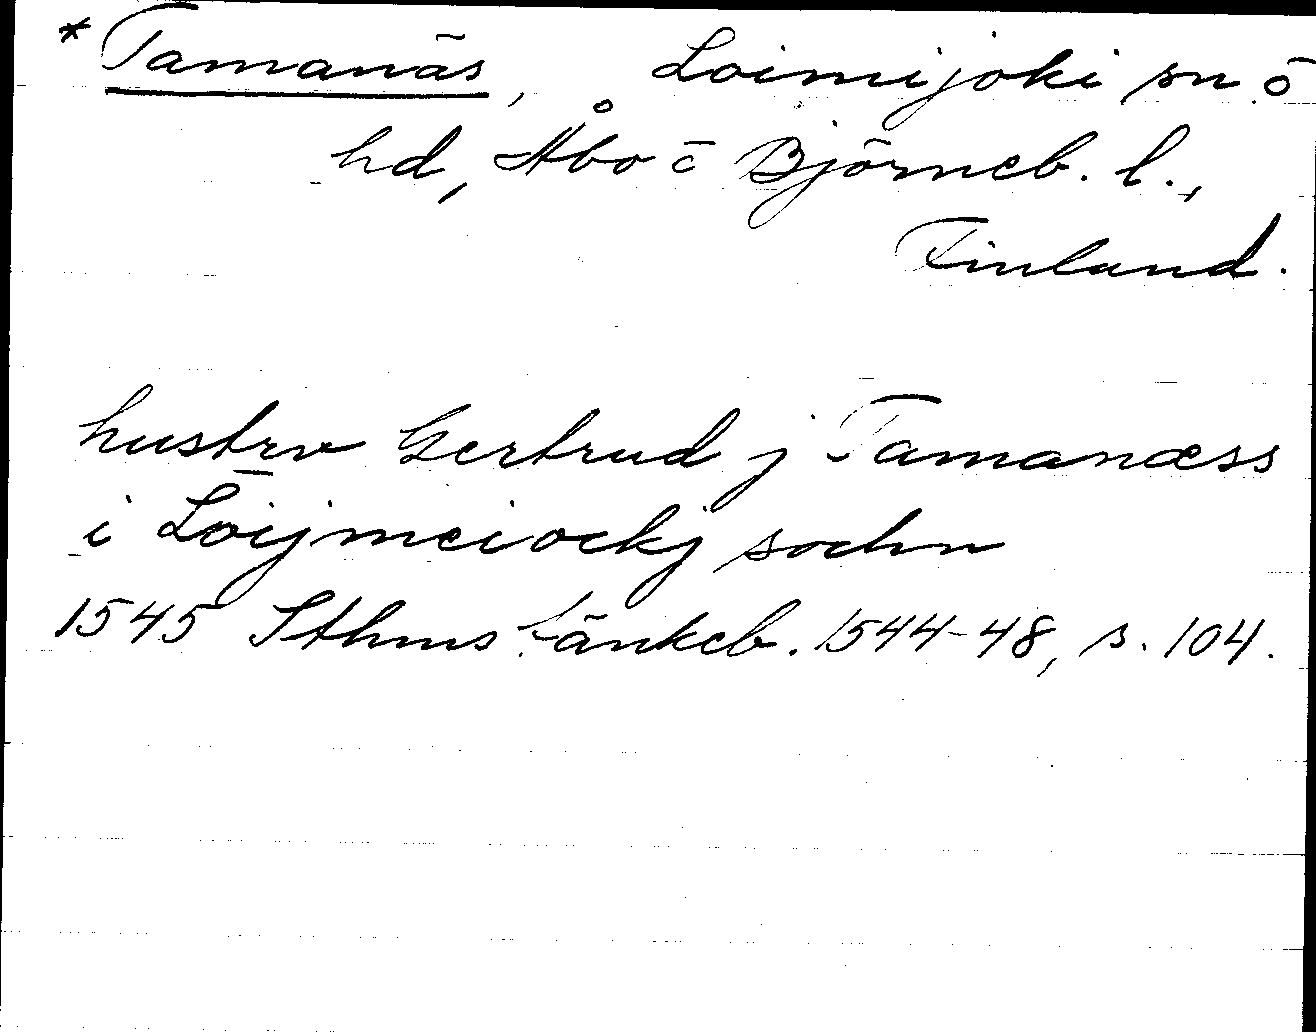 * Tamanäs, Loimijoki sn o
hd, Åbo o Björneb. l.,
Finland.
hustrv Gertrud j Tamanæss
i Löijmeiockj sochn
1545 Sthms tänkeb. 1544-48, s. 104.